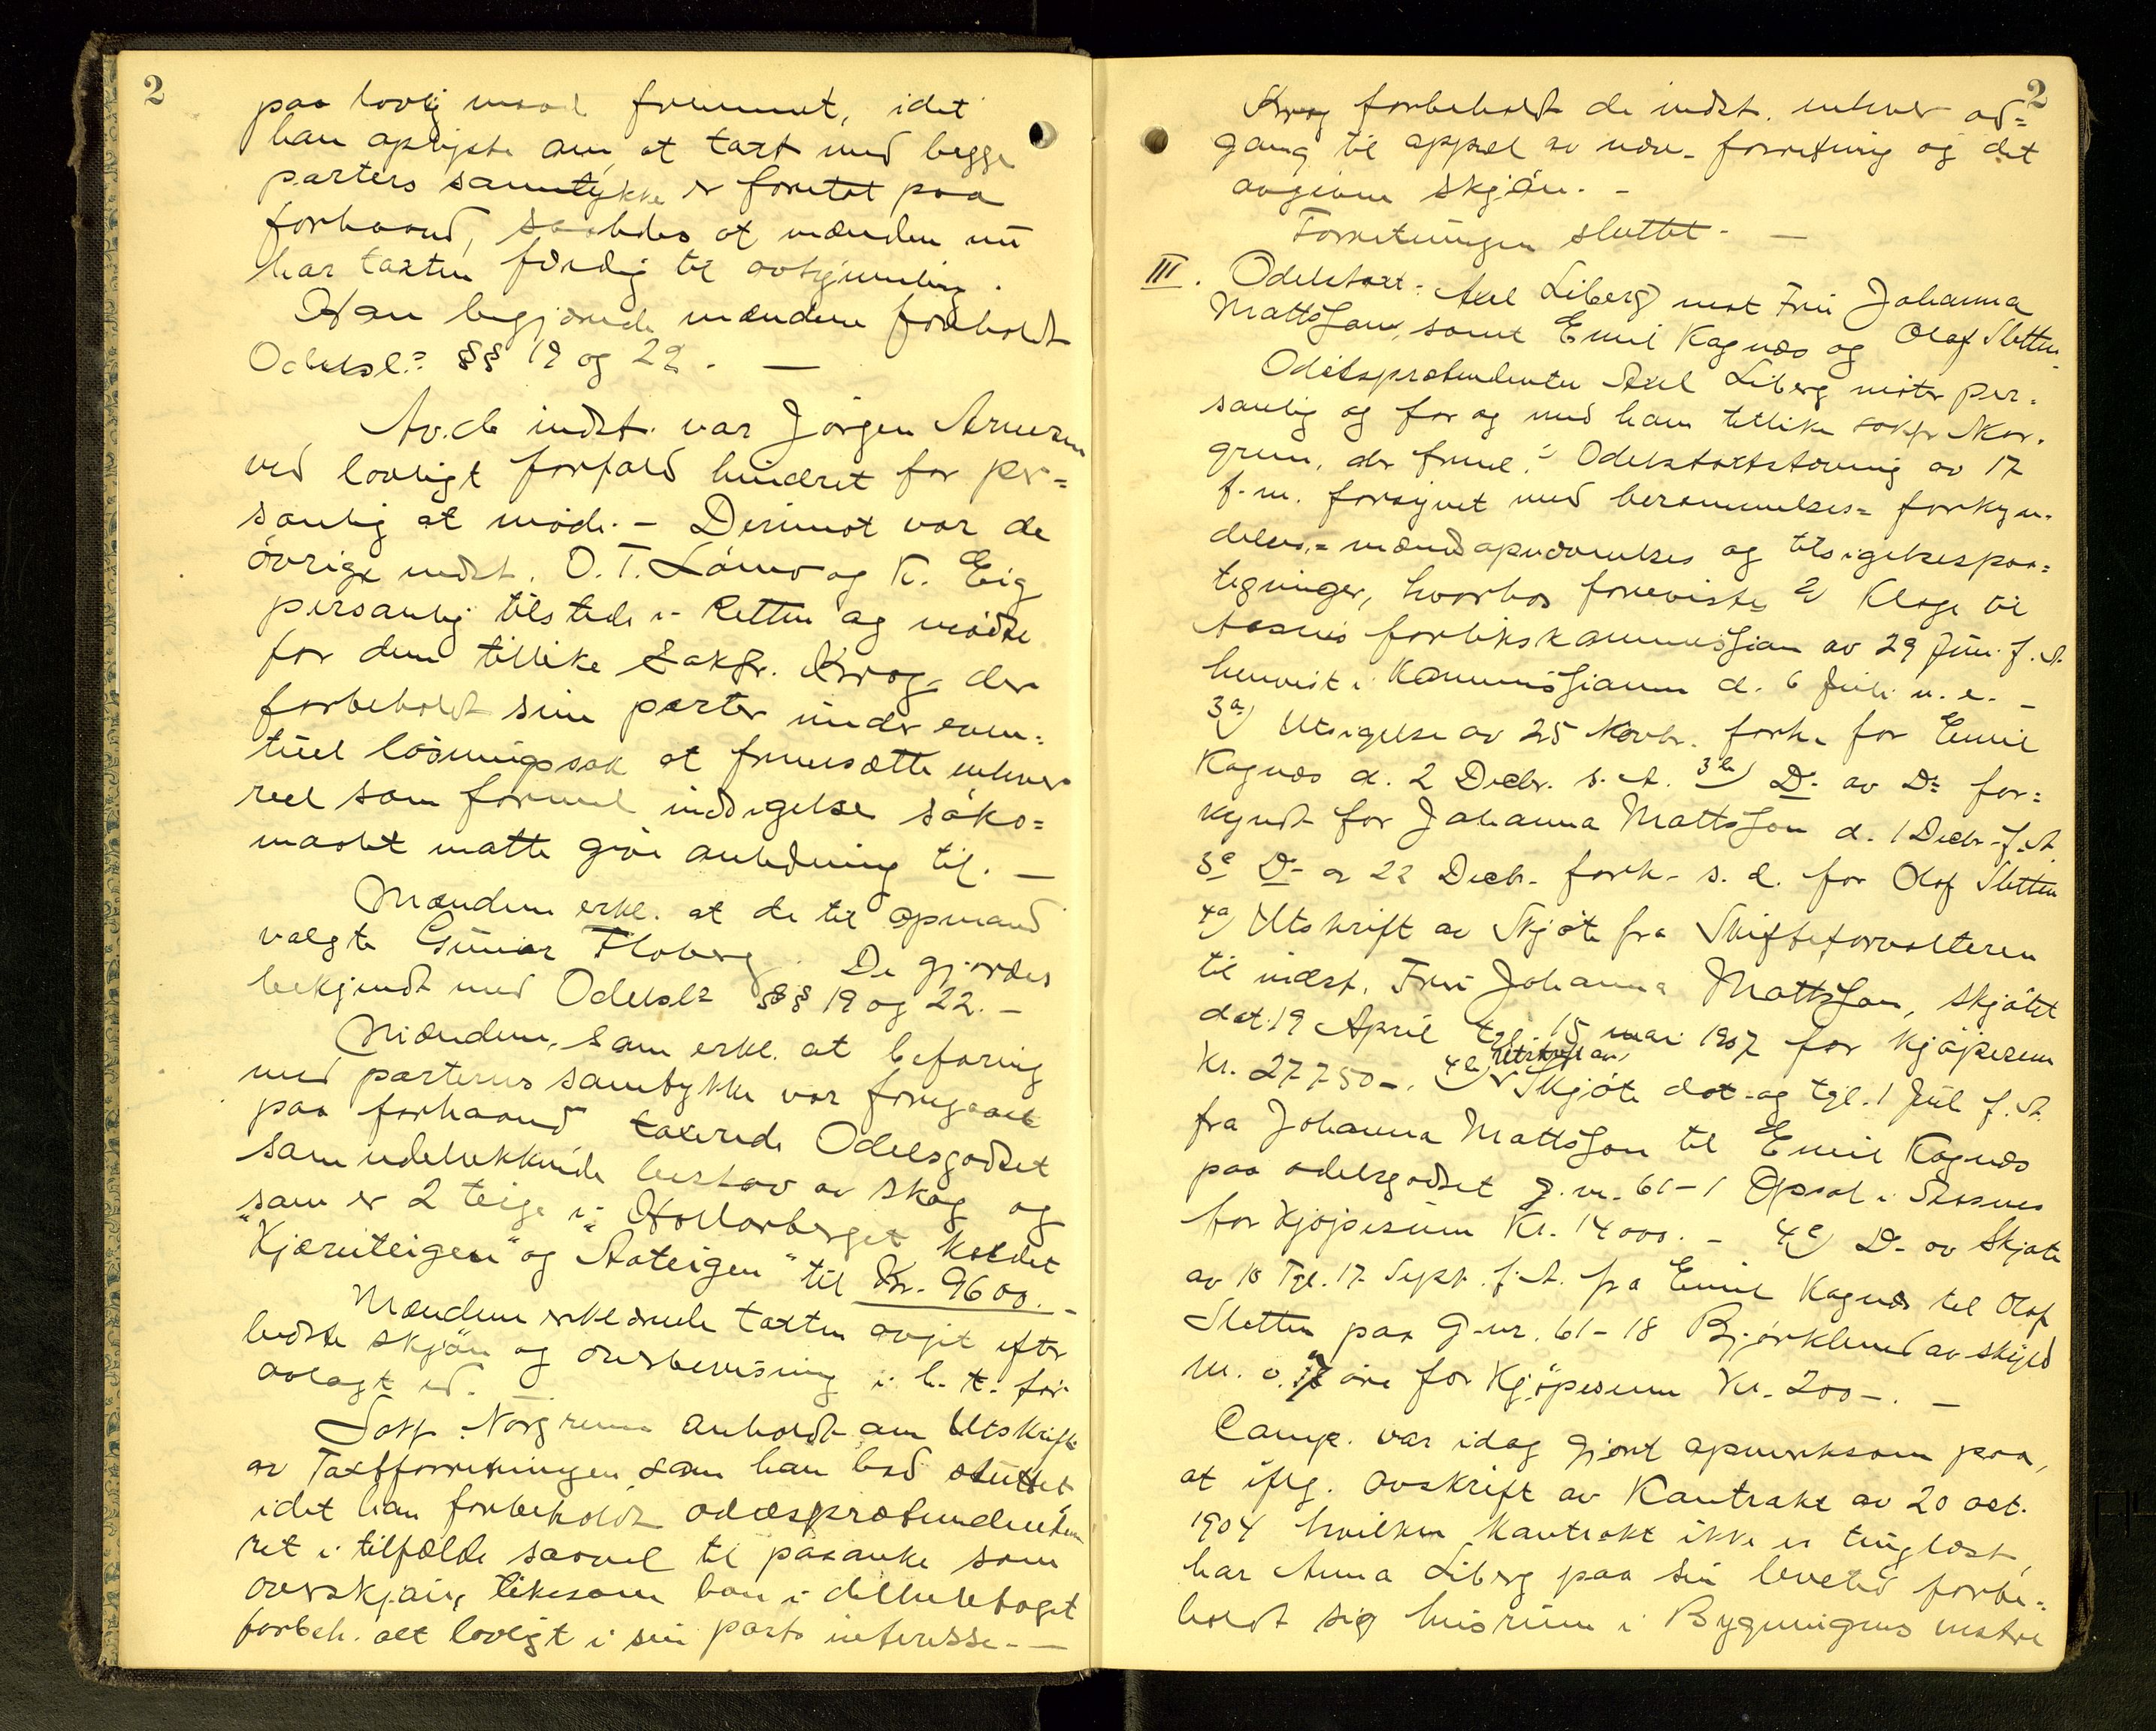 2
paa lovlig maad fremmet, idet
han oplyste om, at taxt med begge
parters samtykke er foretat paa
forhaand, saaledes at mænden nu
har taxten færdig til avhjemling.
Han begjærede mændene foreholdt
Odelsl: §§ 19 og 22. —
Av de indst. var Jörgen Arnesen
ved lovligt forfald hindret for per=
sonlig at möde. - Derimot var de
övrige indst. O. T. Lömo og K. Eig
personlig tilstede i Retten og mödte
for dem tillike Sakfr. Krog, der
forbeholdt sine parter under even:
tuel lösningssak at fremsætte enhver
reel som formel indsigelse söks=
maalet matte give anledning til. —
Mændene erkl. at de til opmand
valgte Gunar Floberg. De gjordes
bekjendt med Odelsl: §§ 19 og 22. -
Mændene, som erkl. at befaring
med parternes samtykke var foregaaet
paa forhaand taxerede Odelsgodset
som udelukkende bestaar av skog og
som er 2 teige i "Hollarberget kaldet
"Kjernteigen" og Aateigen" til Kr. 9600. -
Mændene erklærede taxten avgit efter
bedste skjön og overbevisning i h. t. før
avlagt ed. —
Sakf. Norgrenn anholdt om Utskrift
av Taxtforretningen som han bad sluttet
idet han forbeholdt odelsprætendenten
ret i tilfælde saavel til paaanke som
overskjön, likesom han i det hele taget
forbeh. alt lovligt i sin parts interesse. —
2
Krog forbeholdt de indst. enhver ad=
gang til appel av nærv. forretning og det
avgivne skjön. -
Forretningen sluttet. —
III. Odelstaxt: Axel Liberg mot Fru Johanna
Mattsson, samt Emil Kagnæs og Olaf Sletten.
Odelsprætendenten Axel Liberg möter per=
sonlig og for og med ham tillike sakfr Nor=
grenn, der freml. 1 Odelstaxtstævning av 17
f. m. forsynet med berammelses= forkyn=
delses,= mændsopnævnelses og tilsigelsespaa=
tegninger, hvorhos forevistes 2) Klage til
Aasnes forlikskommission av 29 Juni f. A.
henvist i Kommissionen d. 6 Juli n. e. -
3a) Utsigelse av 25 Novbr. fork. for Emil
Kagnæs d. 2 Decbr. s. A. 3b) Do. av Do for=
kyndt for Johanna Mattsson d. 1 Decbr. f. A.
3c Do. av 22 Decbr. fork. s. d. for Olof Sletten
4a) Utskrift av Skjöte fra Skifteforvalteren
til indst. Fru Johanna Mattsson, skjötet
dat. 19 April tgl. 15 mai 1907 for kjöpesum
Kr. 27750-. 4b) Utskrift av Skjöte dat. og tgl. 1 Juli f. A.
fra Johanna Mattsson til Emil Kagnæs
paa odelsgodset g. nr. 61-1 Opsal i Aasnes
for Kjöpesum Kr. 14000. - 4c) Do. av Skjöte
av 16 Tgl. 17 Sept. f. A. fra Emil Kagnæs til Olof
Sletten paa G-nr. 61-18 Björklund av skyld
M. 0.17 öre for Kjöpesum Kr. 200 -. —
Comp. var idag gjort opmerksom paa,
at iflg. avskrift av Kontrakt av 20 oct.
1904 hvilken Kontrakt ikke er tinglæst,
har Anna Liberg paa sin levetid forbe=
holdt sig husrum i Bygningens vestre